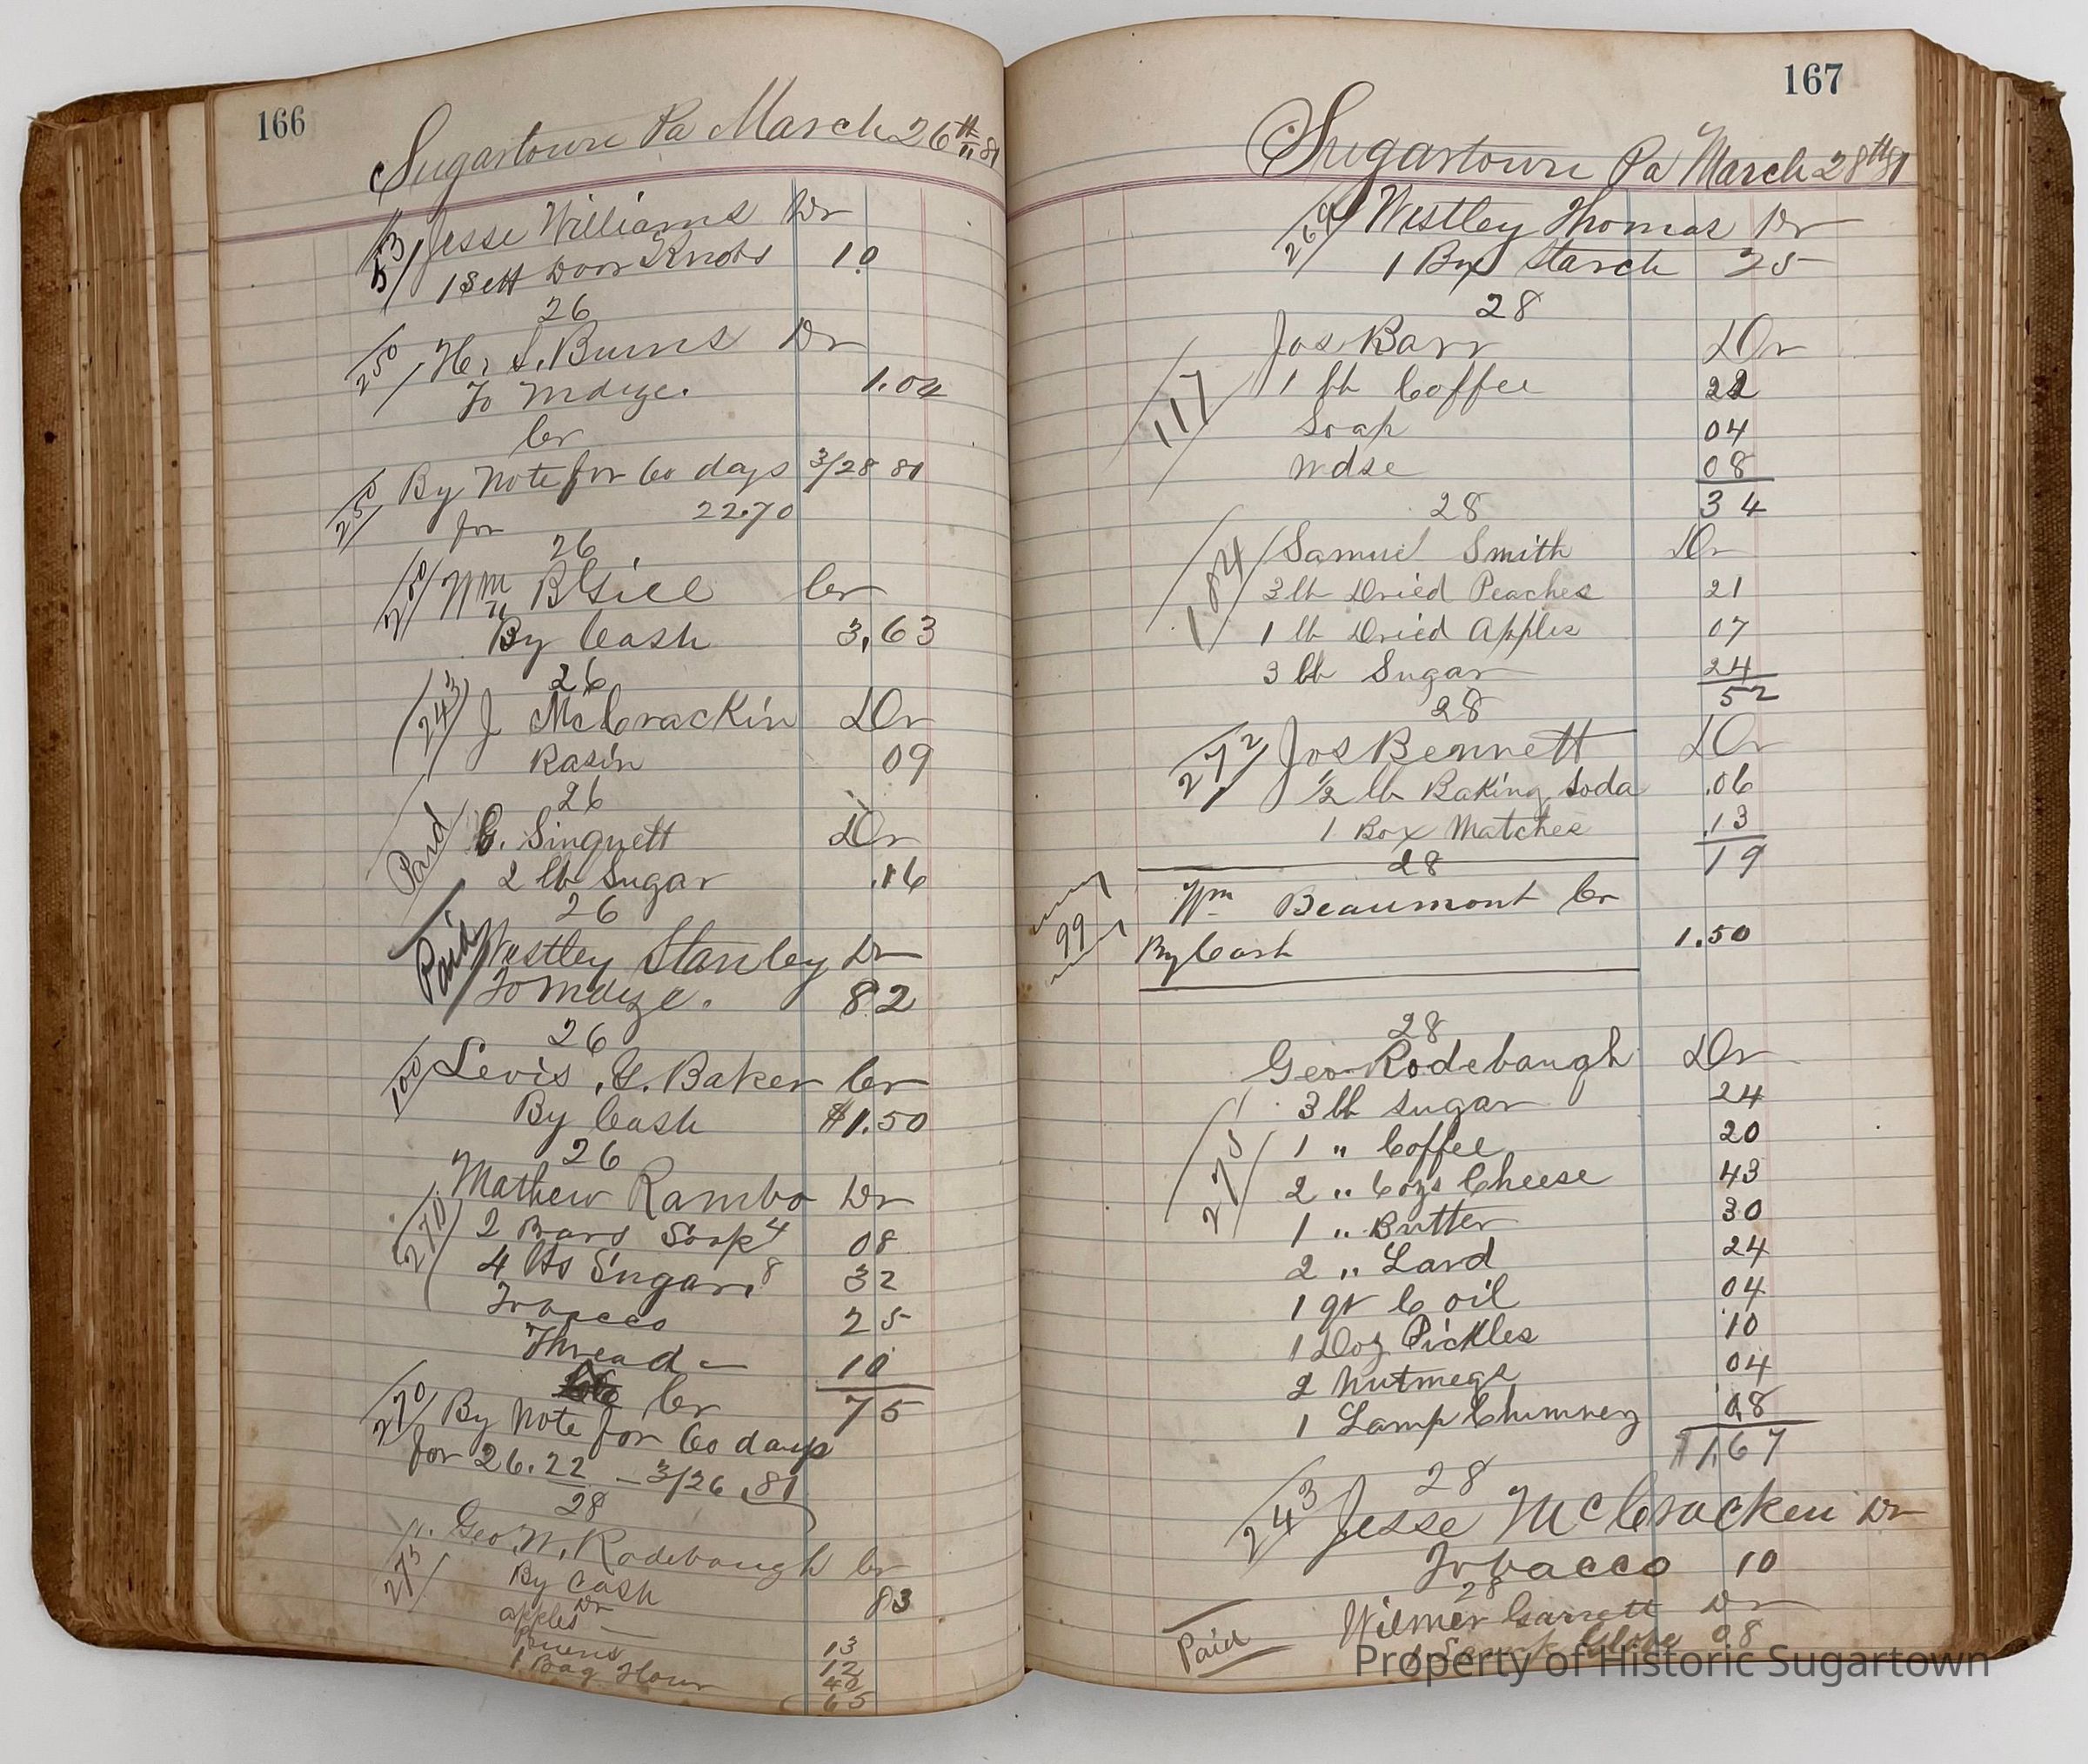 166
Sugartown Pa March 26th 81
53 Jesse Williams Dr
1 Sett Door Knobs 10
26
250 S. Burns Dr
To Mdze. 1.04
Cr
By Note for 60 days 3/28 81
250 for 22.70
26
Wm Cr
By Cash 3.63
26
243 J McCrackin Dr
Rasin 09
26
Paid C. Singuett Dr
2 lb Sugar .16
26
Paid Westley Stanley Dr
To Mdze. 82
26
100 Levis G. Baker Cr
By Cash $1.50
26
Mathew Rambo Dr
270 2 Bars Soap 4 08
4 lbs Sugar 8 32
Tobacco 25
Thread 10
Cr 75
270 By Note for 60 days
for 26.22 - 3/26 81
28
Geo W. Rodebaugh Cr
273 By Cash 83
Dr
apples 13
Pruens 12
1 Bag Flour 40
65
167
Sugartown Pa March 28th 81
264 Westley Thomas Dr
1 Box Starch 25
28
Jos Barr Dr
117 1 lb Coffee 22
Soap 04
Mdse 08
28 34
184 Samuel Smith Dr
3 lb Dried Peaches 21
1 lb Dried Apples 07
3 lb Sugar 24
28 52
272 Jos Bennett Dr
1/2 lb Baking Soda .06
1 Box Matches .13
28 19
Wm Beaumont Cr
99 By Cash 1.50
28
Geo Rodebaugh Dr
3 lb Sugar 24
1 " Coffee 20
273 2 " 6 ozs Cheese 43
1 " Butter 30
2 " Lard 24
1 qt C oil 04
1 Doz Pickles 10
2 Nutmegs 04
1 Lamp Chimney 08
1.67
28
243 Jesse McCracken Dr
Tobacco 10
28
Paid Wilmer Garrett Dr
1 Lamp Globe 08
Property of Historic Sugartown